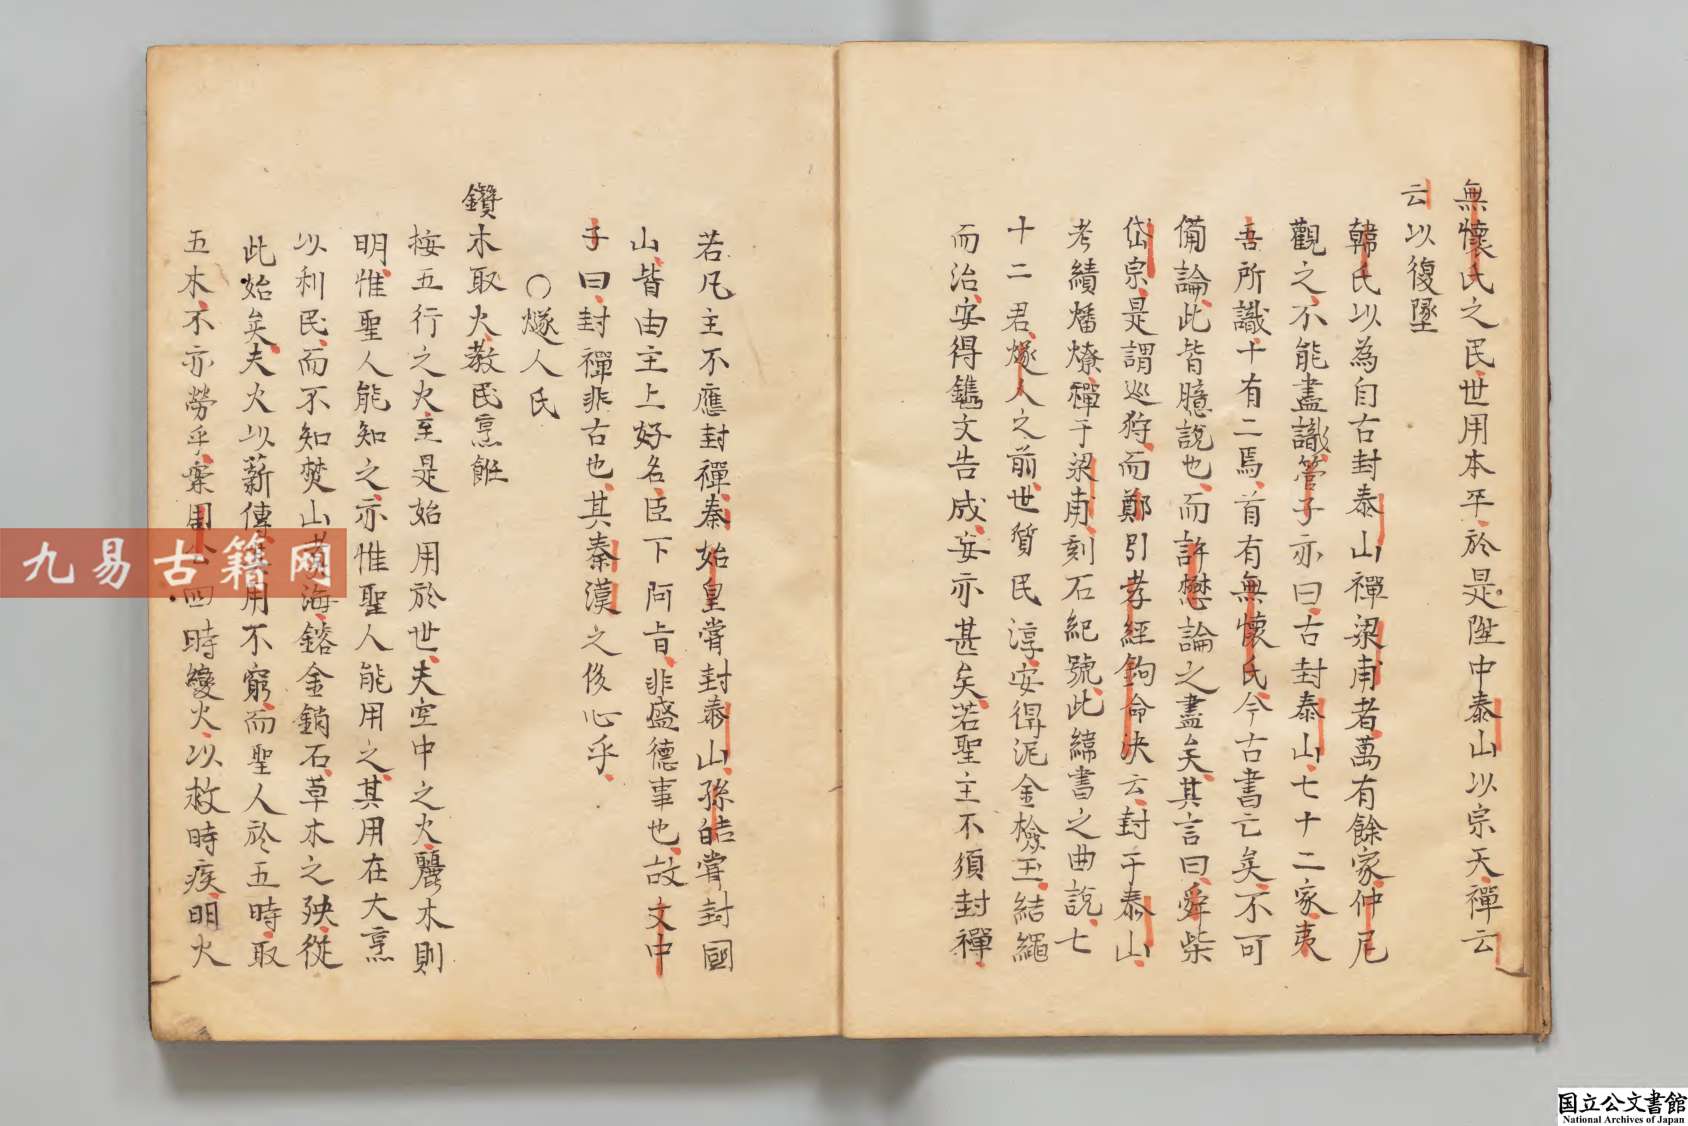 無懷氏之民世用本平於是陞中泰山以宗天禪云
云以復墬
韓氏以為自古封泰山禪梁甫者萬有餘家仲尼
觀之不能盡識管子亦曰古封泰山七十二家夷
吾所識十有二焉首有無懷氏今古書亡矣不可
備論此皆臆說也而許懋論之盡矣其言曰舜柴
岱宗是謂巡狩而鄭引孝經鉤命決云封于泰山
考績燔燎禪于梁甫刻石紀號此緯書之曲說七
十二君燧人之前世質民淳安得泥金檢玉結繩
而治安得鐫文告成妄亦甚矣若聖主不須封禪
若凡主不應封禪秦始皇嘗封泰山孫皓嘗封國
山皆由主上好名臣下阿旨非盛德事也故文中
子曰封禪非古也其秦漢之後心乎
〇燧人氏
鑽木取火教民烹飪
按五行之火至是始用於世夫空中之火麗木則
明惟聖人能知之亦惟聖人能用之其用在大烹
以利民而不知焚山煮海鎔金銷石草木之殃從
此始矣夫火以薪傳其用不窮而聖人於五時取
五木不亦勞乎案周公四時變火以救時疾明火
九易古籍网
国立公文書館
National Archives of Japan